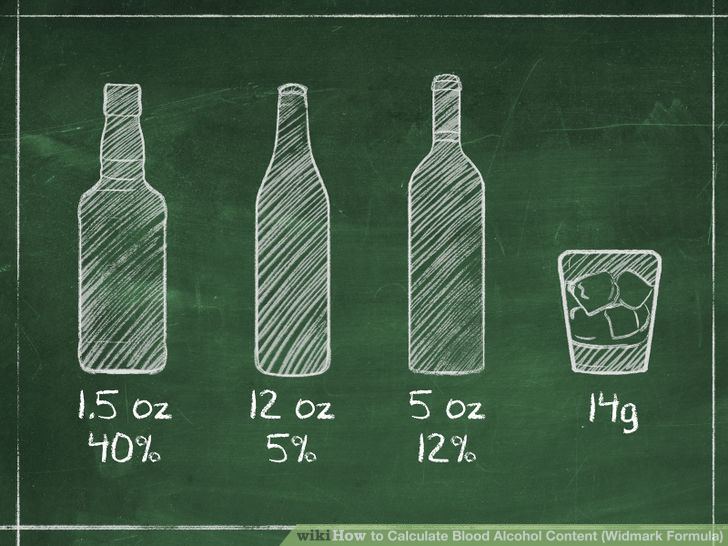 1.5 oz
40%
12 oz
5%
5 oz
12%
14g
wikiHow to Calculate Blood Alcohol Content (Widmark Formula)